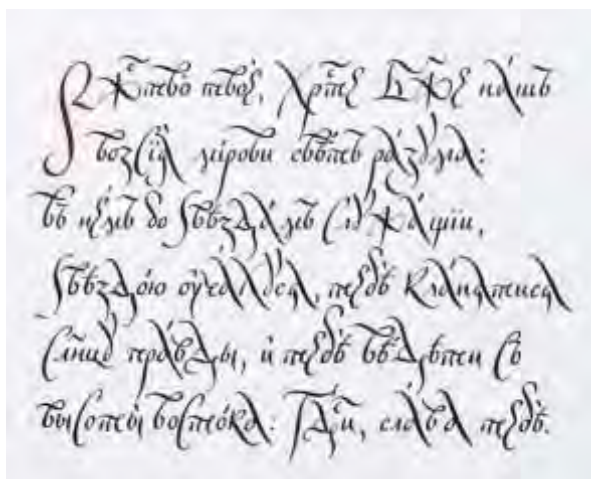 Ржⷭ҇тво̀ твоѐ, Хрⷭ҇тѐ Бж҃е на́шъ
возсїѧ̀ мі́рови свѣ́тъ ра́зꙋма:
въ не́мъ бо ѕвѣзда́мъ слꙋжа́щїи,
ѕвѣздо́ю ᲂу҆ча́хꙋсѧ, тебѣ̀ кла́нѧтисѧ
сл҃нцꙋ пра́вды, и҆ тебѣ̀ вѣ́дѣти съ
высоты̀ восто́ка: Гдⷭ҇и, сла́ва тебѣ̀.